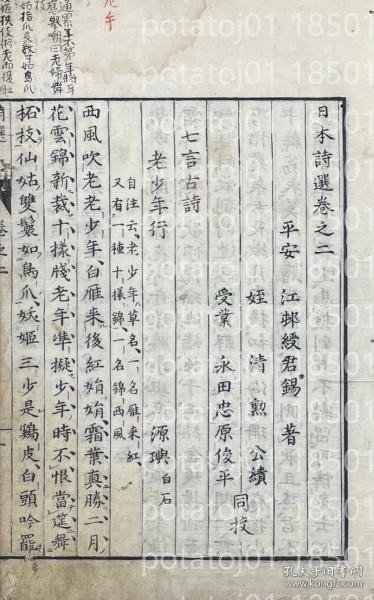 日本詩選卷之二
平安 江邨綬君錫 著
姪 清勲 公績
受業 永田忠原俊平 同校
七言古詩
老少年行 源璵 白石
自注云、老少年草名、一名雁来紅、
又有一種十樣錦、一名錦西風
西風吹老老少年、白雁来後紅娟娟、霜葉真勝二月
花、雲錦新裁十樣牋、老年準擬少年時、不恨當筵舞
柘枝、仙姑雙鬟如鳥爪、妖姬三少是鷄皮、白頭吟罷
potatoj01 18501
孔夫子旧书网